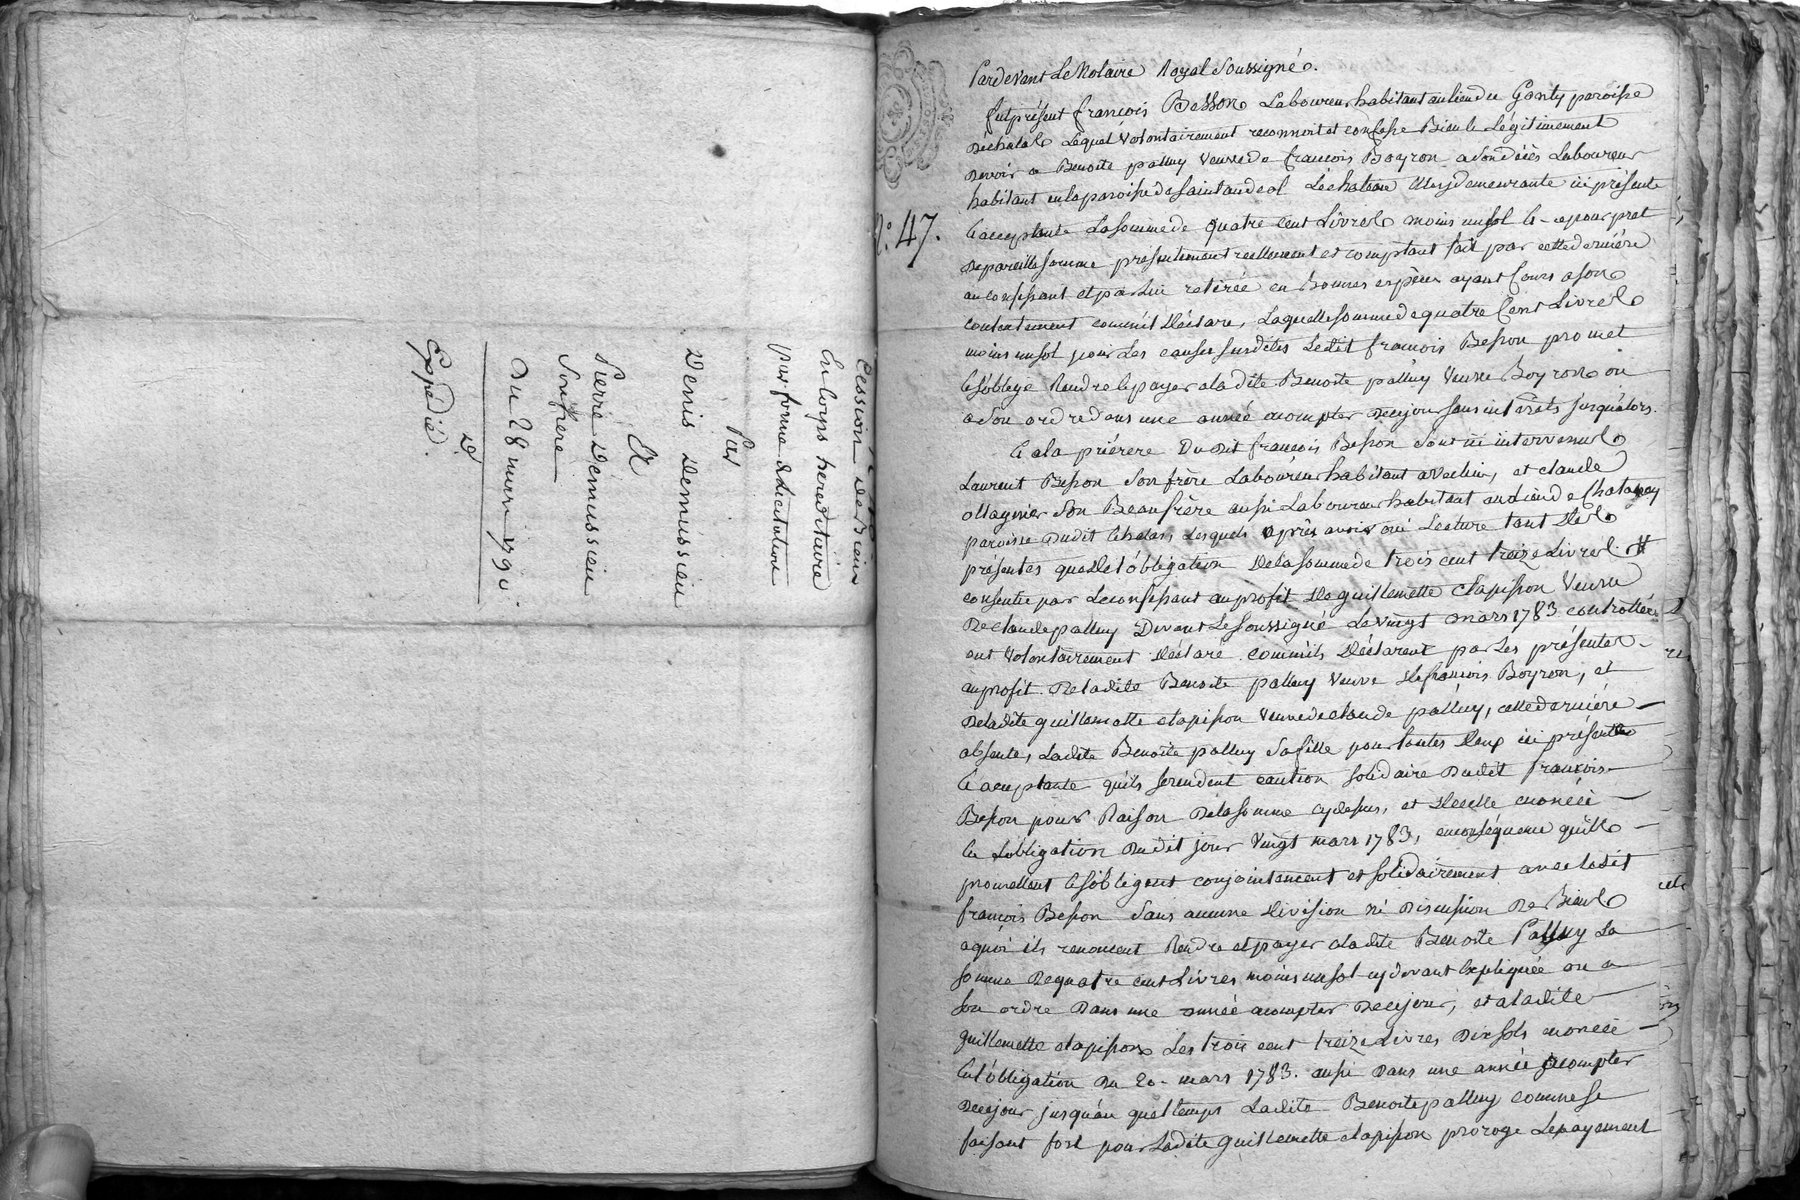 Cession de Biens
En Corps hereditaire
par forme de Licitation
Par
Denis Demussieu
Et
Pierre Demussieu
Son frere
Du 28 mars 1790.
D
Expédié.
N.º 47.
Pardevant Le Notaire Royal Soussigné.
fut présent françois Besson Laboureur habitant au lieu du Gonty paroisse
de chalas Lequel Volontairement reconnoit et confesse Bien et Légitimement
devoir a Benoite palluy Veuve de françois Boyron a son décès Laboureur
habitant en la paroisse de saint andeol Le chateau y demeurante ici présente
et acceptante La somme de quatre cent Livres moins un sol et ce pour prêt
de pareille somme présentement reellement et comptant fait par cette dernière
au confessant et par Lui retirée en Bonnes espèces ayant Cours a son
contentement comm'il Déclare, Laquelle somme de quatre Cent Livres
moins un sol pour Les causes susdites Ledit françois Besson promet
et s'oblige Rendre et payer a ladite Benoite palluy Veuve Boyron ou
a Son ordre dans une année a compter de ce jour sans intérats jusqu'alors.
Et a la prière Du dit françois Besson sont ici intervenus
Laurent Besson Son frère Laboureur habitant a Vechin, et claude
ollagnier Son Beaufrère aussi Laboureur habitant au Lieu de Chatanay
paroisse dudit Chalas, Lesquels après avoir oui Lecture tant Des
présentes que De l'obligation De la somme de trois cent treize Livres #
consentie par Le confessant au profit De guillemette clapisson Veuve
De claude palluy Devant Le soussigné Le vingt mars 1783. controllée
ont Volontairement Déclaré comm'ils Déclarent par Les présentes
au profit De ladite Benoite palluy Veuve De françois Boyron, et
De ladite guillemette clapisson Veuve de claude palluy, cette dernière
absente, Ladite Benoite palluy Sa fille pour toutes Deux ici présente
et acceptante qu'ils se rendent caution solidaire Dudit françois
Besson pour Raison De la somme cy dessus, et De celle enoncée
en L'obligation Dudit jour Vingt mars 1783, en conséquence qu'ils
promettent et s'obligent conjointement et solidairement avec ledit
françois Besson Sans aucune Division ni Discussion De Biens
a quoi ils renoncent Rendre et payer a ladite Benoite Palluy La
somme De quatre cent Livres moins un sol cy devant Expliquée ou a
son ordre Dans une année a compter De ce jour, et a ladite
guillemette clapisson Les trois cent treize Livres Dix sols enoncée
En l'obligation du 20. mars 1783. aussi Dans une année a compter
De ce jour jusqu'au quel temps Ladite Benoite palluy comme se
faisant fort pour Ladite guillemette clapisson proroge Le payement